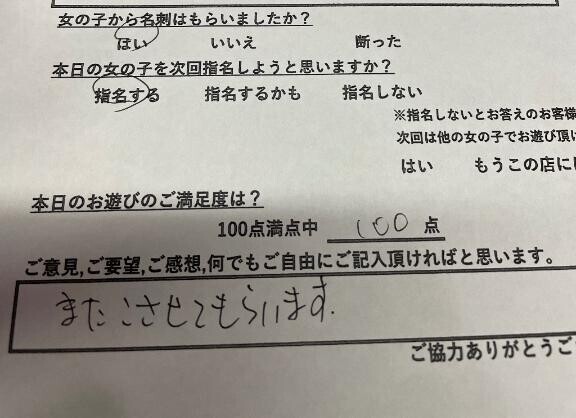 女の子から名刺はもらいましたか？
はい　いいえ　断った
本日の女の子を次回指名しようと思いますか？
指名する　指名するかも　指名しない
※指名しないとお答えのお客様
次回は他の女の子でお遊び頂け
はい　もうこの店に
本日のお遊びのご満足度は？
100点満点中　100　点
ご意見,ご要望,ご感想,何でもご自由にご記入頂ければと思います。
またこさせてもらいます.
ご協力ありがとうご